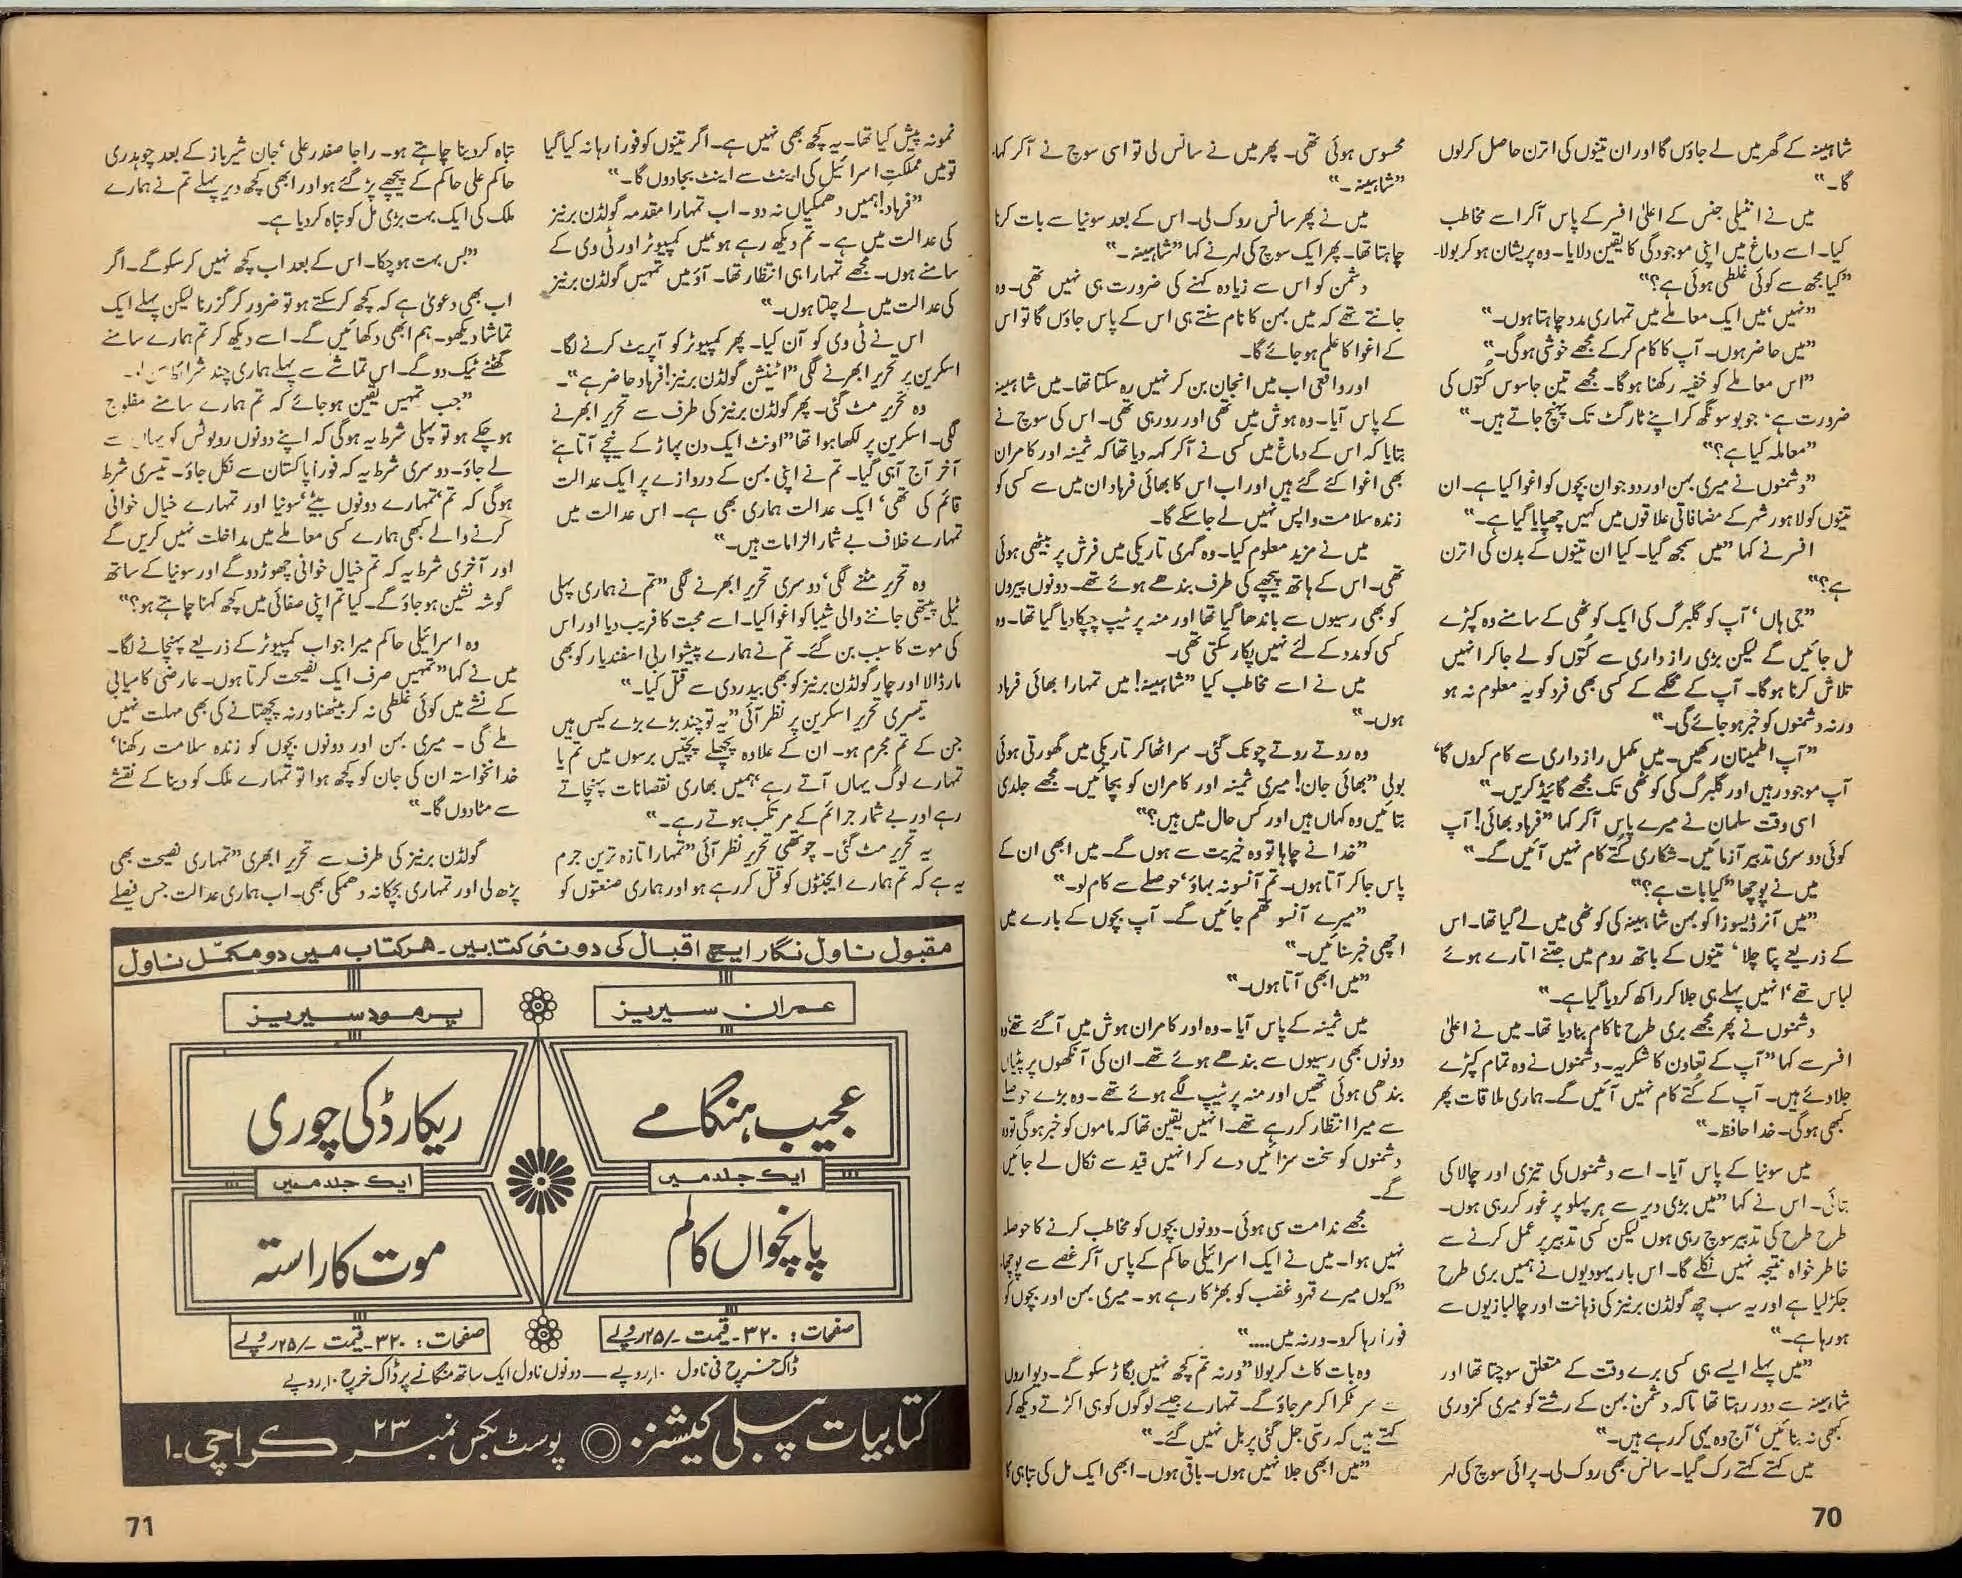 شاہینہ کے گھر میں لے جاؤں گا اور ان تینوں کی اترن حاصل کرلوں
گا۔"
میں نے انٹیلی جنس کے اعلیٰ افسر کے پاس آکر اسے مخاطب
کیا۔ اسے دماغ میں اپنی موجودگی کا یقین دلایا۔ وہ پریشان ہو کر بولا۔
"کیا مجھ سے کوئی غلطی ہوئی ہے؟"
"نہیں، میں ایک معاملے میں تمہاری مدد چاہتا ہوں۔"
"میں حاضر ہوں۔ آپ کا کام کرکے مجھے خوشی ہوگی۔"
"اس معاملے کو خفیہ رکھنا ہوگا۔ مجھے تین جاسوس کتوں کی
ضرورت ہے، جو بو سونگھ کر اپنے ٹارگٹ تک پہنچ جاتے ہیں۔"
"معاملہ کیا ہے؟"
"دشمنوں نے میری بہن اور دو جوان بچوں کو اغوا کیا ہے۔ ان
تینوں کو لاہور شہر کے مضافاتی علاقوں میں کہیں چھپایا گیا ہے۔"
افسر نے کہا "میں سمجھ گیا۔ کیا ان تینوں کے بدن کی اترن
ہے؟"
"جی ہاں، آپ کو گلبرگ کی ایک کوٹھی کے سامنے وہ کپڑے
مل جائیں گے لیکن بڑی رازداری سے کُتوں کو لے جاکر انہیں
تلاش کرنا ہوگا۔ آپ کے محکمے کے کسی بھی فرد کو یہ معلوم نہ ہو
ورنہ دشمنوں کو خبر ہو جائے گی۔"
"آپ اطمینان رکھیں۔ میں مکمل رازداری سے کام کروں گا،
آپ موجود رہیں اور گلبرگ کی کوٹھی تک مجھے گائیڈ کریں۔"
اسی وقت سلمان نے میرے پاس آکر کہا "فرہاد بھائی! آپ
کوئی دوسری تدبیر آزمائیں۔ شکاری کُتے کام نہیں آئیں گے۔"
میں نے پوچھا "کیا بات ہے؟"
"میں آنر ڈیسوزا کو بہن شاہینہ کی کوٹھی میں لے گیا تھا۔ اس
کے ذریعے پتا چلا، تینوں کے باتھ روم میں جتنے اتارے ہوئے
لباس تھے، انہیں پہلے ہی جلا کر راکھ کردیا گیا ہے۔"
دشمنوں نے پھر مجھے بری طرح ناکام بنادیا تھا۔ میں نے اعلیٰ
افسر سے کہا "آپ کے تعاون کا شکریہ۔ دشمنوں نے وہ تمام کپڑے
جلادئے ہیں۔ آپ کے کُتے کام نہیں آئیں گے۔ ہماری ملاقات پھر
کبھی ہوگی۔ خدا حافظ۔"
میں سونیا کے پاس آیا۔ اسے دشمنوں کی تیزی اور چالاکی
بتائی۔ اس نے کہا "میں بڑی دیر سے ہر پہلو پر غور کر رہی ہوں۔
طرح طرح کی تدبیر سوچ رہی ہوں لیکن کسی تدبیر پر عمل کرنے سے
خاطر خواہ نتیجہ نہیں نکلے گا۔ اس بار یہودیوں نے ہمیں بری طرح
جکڑ لیا ہے اور یہ سب کچھ گولڈن برنیز کی ذہانت اور چالبازیوں سے
ہورہا ہے۔"
"میں پہلے ایسے ہی کسی برے وقت کے متعلق سوچتا تھا اور
شاہینہ سے دور رہتا تھا تاکہ دشمن بہن کے رشتے کو میری کمزوری
کبھی نہ بنائیں، آج وہ یہی کر رہے ہیں۔"
میں کہتے کہتے رک گیا۔ سانس بھی روک لی۔ پرائی سوچ کی لہر
محسوس ہوئی تھی۔ پھر میں نے سانس لی تو اسی سوچ نے آکر کہا،
"شاہینہ۔"
میں نے پھر سانس روک لی۔ اس کے بعد سونیا سے بات کرنا
چاہتا تھا۔ پھر ایک سوچ کی لہر نے کہا "شاہینہ۔"
دشمن کو اس سے زیادہ کہنے کی ضرورت ہی نہیں تھی۔ وہ
جانتے تھے کہ میں بہن کا نام سنتے ہی اس کے پاس جاؤں گا تو اس
کے اغوا کا علم ہو جائے گا۔
اور واقعی اب میں انجان بن کر نہیں رہ سکتا تھا۔ میں شاہینہ
کے پاس آیا۔ وہ ہوش میں تھی اور رو رہی تھی۔ اس کی سوچ نے
بتایا کہ اس کے دماغ میں کسی نے آکر کہہ دیا تھا کہ ثمینہ اور کامران
بھی اغوا کئے گئے ہیں اور اب اس کا بھائی فرہاد ان میں سے کسی کو
زندہ سلامت واپس نہیں لے جاسکے گا۔
میں نے مزید معلوم کیا۔ وہ گہری تاریکی میں فرش پر بیٹھی ہوئی
تھی۔ اس کے ہاتھ پیچھے کی طرف بندھے ہوئے تھے۔ دونوں پیروں
کو بھی رسیوں سے باندھا گیا تھا اور منہ پر ٹیپ چپکا دیا گیا تھا۔ وہ
کسی کو مدد کے لئے نہیں پکار سکتی تھی۔
میں نے اسے مخاطب کیا "شاہینہ! میں تمہارا بھائی فرہاد
ہوں۔"
وہ روتے روتے چونک گئی۔ سر اٹھا کر تاریکی میں گھورتی ہوئی
بولی "بھائی جان! میری ثمینہ اور کامران کو بچائیں۔ مجھے جلدی
بتائیں وہ کہاں ہیں اور کس حال میں ہیں؟"
"خدا نے چاہا تو وہ خیریت سے ہوں گے۔ میں ابھی ان کے
پاس جاکر آتا ہوں۔ تم آنسو نہ بہاؤ، حوصلے سے کام لو۔"
"میرے آنسو تھم جائیں گے۔ آپ بچوں کے بارے میں
اچھی خبر سنائیں۔"
"میں ابھی آتا ہوں۔"
میں ثمینہ کے پاس آیا۔ وہ اور کامران ہوش میں آگئے تھے، وہ
دونوں بھی رسیوں سے بندھے ہوئے تھے۔ ان کی آنکھوں پر پٹیاں
بندھی ہوئی تھیں اور منہ پر ٹیپ لگے ہوئے تھے۔ وہ بڑے حوصلے
سے میرا انتظار کر رہے تھے۔ انہیں یقین تھا کہ ماموں کو خبر ہوگی تو وہ
دشمنوں کو سخت سزائیں دے کر انہیں قید سے نکال لے جائیں
گے۔
مجھے ندامت سی ہوئی۔ دونوں بچوں کو مخاطب کرنے کا حوصلہ
نہیں ہوا۔ میں نے ایک اسرائیلی حاکم کے پاس آکر غصے سے پوچھا،
"کیوں میرے قہر و غضب کو بھڑکا رہے ہو۔ میری بہن اور بچوں کو
فوراً رہا کرو۔ ورنہ میں...."
وہ بات کاٹ کر بولا "ورنہ تم کچھ نہیں بگاڑ سکو گے۔ دیواروں
سے سر ٹکرا کر مرجاؤ گے۔ تمہارے جیسے لوگوں کو ہی اکڑتے دیکھ کر
کہتے ہیں کہ رسّی جل گئی پر بل نہیں گئے۔"
"میں ابھی جلا نہیں ہوں۔ باقی ہوں۔ ابھی ایک مل کی تباہی کا
70
نمونہ پیش کیا تھا۔ یہ کچھ بھی نہیں ہے۔ اگر تینوں کو فوراً رہا نہ کیا گیا
تو میں مملکتِ اسرائیل کی اینٹ سے اینٹ بجادوں گا۔"
"فرہاد! ہمیں دھمکیاں نہ دو۔ اب تمہارا مقدمہ گولڈن برنیز
کی عدالت میں ہے۔ تم دیکھ رہے ہو، میں کمپیوٹر اور ٹی وی کے
سامنے ہوں۔ مجھے تمہارا ہی انتظار تھا۔ آؤ میں تمہیں گولڈن برنیز
کی عدالت میں لے چلتا ہوں۔"
اس نے ٹی وی کو آن کیا۔ پھر کمپیوٹر کو آپریٹ کرنے لگا۔
اسکرین پر تحریر ابھرنے لگی "اٹینشن گولڈن برنیز! فرہاد حاضر ہے"۔
وہ تحریر مٹ گئی۔ پھر گولڈن برنیز کی طرف سے تحریر ابھرنے
لگی۔ اسکرین پر لکھا ہوا تھا "اونٹ ایک دن پہاڑ کے نیچے آتا ہے
آخر آج آہی گیا۔ تم نے اپنی بہن کے دروازے پر ایک عدالت
قائم کی تھی، ایک عدالت ہماری بھی ہے۔ اس عدالت میں
تمہارے خلاف بے شمار الزامات ہیں۔"
وہ تحریر مٹنے لگی، دوسری تحریر ابھرنے لگی "تم نے ہماری پہلی
ٹیلی پیتھی جاننے والی شیبا کو اغوا کیا۔ اسے محبت کا فریب دیا اور اس
کی موت کا سبب بن گئے۔ تم نے ہمارے پیشوا ربی اسفندیار کو بھی
مار ڈالا اور چار گولڈن برنیز کو بھی بیدردی سے قتل کیا۔"
تیسری تحریر اسکرین پر نظر آئی "یہ تو چند بڑے بڑے کیس ہیں
جن کے تم مجرم ہو۔ ان کے علاوہ پچھلے پچیس برسوں میں تم یا
تمہارے لوگ یہاں آتے رہے، ہمیں بھاری نقصانات پہنچاتے
رہے اور بے شمار جرائم کے مرتکب ہوتے رہے۔"
یہ تحریر مٹ گئی۔ چوتھی تحریر نظر آئی "تمہارا تازہ ترین جرم
یہ ہے کہ تم ہمارے ایجنٹوں کو قتل کر رہے ہو اور ہماری صنعتوں کو
تباہ کردینا چاہتے ہو۔ راجا صفدر علی، جان شیرباز کے بعد چوہدری
حاکم علی حاکم کے پیچھے پڑ گئے ہو اور ابھی کچھ دیر پہلے تم نے ہمارے
ملک کی ایک بہت بڑی مل کو تباہ کردیا ہے۔
"بس بہت ہوچکا۔ اس کے بعد اب کچھ نہیں کرسکو گے۔ اگر
اب بھی دعویٰ ہے کہ کچھ کرسکتے ہو تو ضرور کر گزرنا لیکن پہلے ایک
تماشا دیکھو۔ ہم ابھی دکھائیں گے۔ اسے دیکھ کر تم ہمارے سامنے
گھٹنے ٹیک دو گے۔ اس تماشے سے پہلے ہماری چند شرائط
"جب تمہیں یقین ہو جائے کہ تم ہمارے سامنے مفلوج
ہو چکے ہو تو پہلی شرط یہ ہوگی کہ اپنے دونوں روبوٹس کو یہاں سے
لے جاؤ۔ دوسری شرط یہ کہ فوراً پاکستان سے نکل جاؤ۔ تیسری شرط
ہوگی کہ تم، تمہارے دونوں بیٹے، سونیا اور تمہارے خیال خوانی
کرنے والے کبھی ہمارے کسی معاملے میں مداخلت نہیں کریں گے
اور آخری شرط یہ کہ تم خیال خوانی چھوڑ دو گے اور سونیا کے ساتھ
گوشہ نشین ہو جاؤ گے۔ کیا تم اپنی صفائی میں کچھ کہنا چاہتے ہو؟"
وہ اسرائیلی حاکم میرا جواب کمپیوٹر کے ذریعے پہنچانے لگا۔
میں نے کہا "تمہیں صرف ایک نصیحت کرتا ہوں۔ عارضی کامیابی
کے نشے میں کوئی غلطی نہ کر بیٹھنا ورنہ پچھتانے کی بھی مہلت نہیں
ملے گی۔ میری بہن اور دونوں بچوں کو زندہ سلامت رکھنا،
خدانخواستہ ان کی جان کو کچھ ہوا تو تمہارے ملک کو دینا کے نقشے
سے مٹادوں گا۔"
گولڈن برنیز کی طرف سے تحریر ابھری "تمہاری نصیحت بھی
پڑھ لی اور تمہاری بچکانہ دھمکی بھی۔ اب ہماری عدالت جس فیصلے
مقبول ناول نگار ایچ اقبال کی دو نئی کتابیں۔ ہر کتاب میں دو مکمل ناول
عمران سیریز
پرمود سیریز
عجیب ہنگامے
ریکارڈ کی چوری
ایک جلد میں
ایک جلد میں
پانچواں کالم
موت کا راستہ
صفحات: ۳۲۰۔ قیمت ۔/۲۵ روپے
صفحات: ۳۲۰۔ قیمت ۔/۲۵ روپے
ڈاک خرچ فی ناول ۱۰ روپے — دونوں ناول ایک ساتھ منگانے پر ڈاک خرچ ۱۰ روپے
کتابیات پبلی کیشنز ○ پوسٹ بکس نمبر ۲۳ کراچی۔۱
71